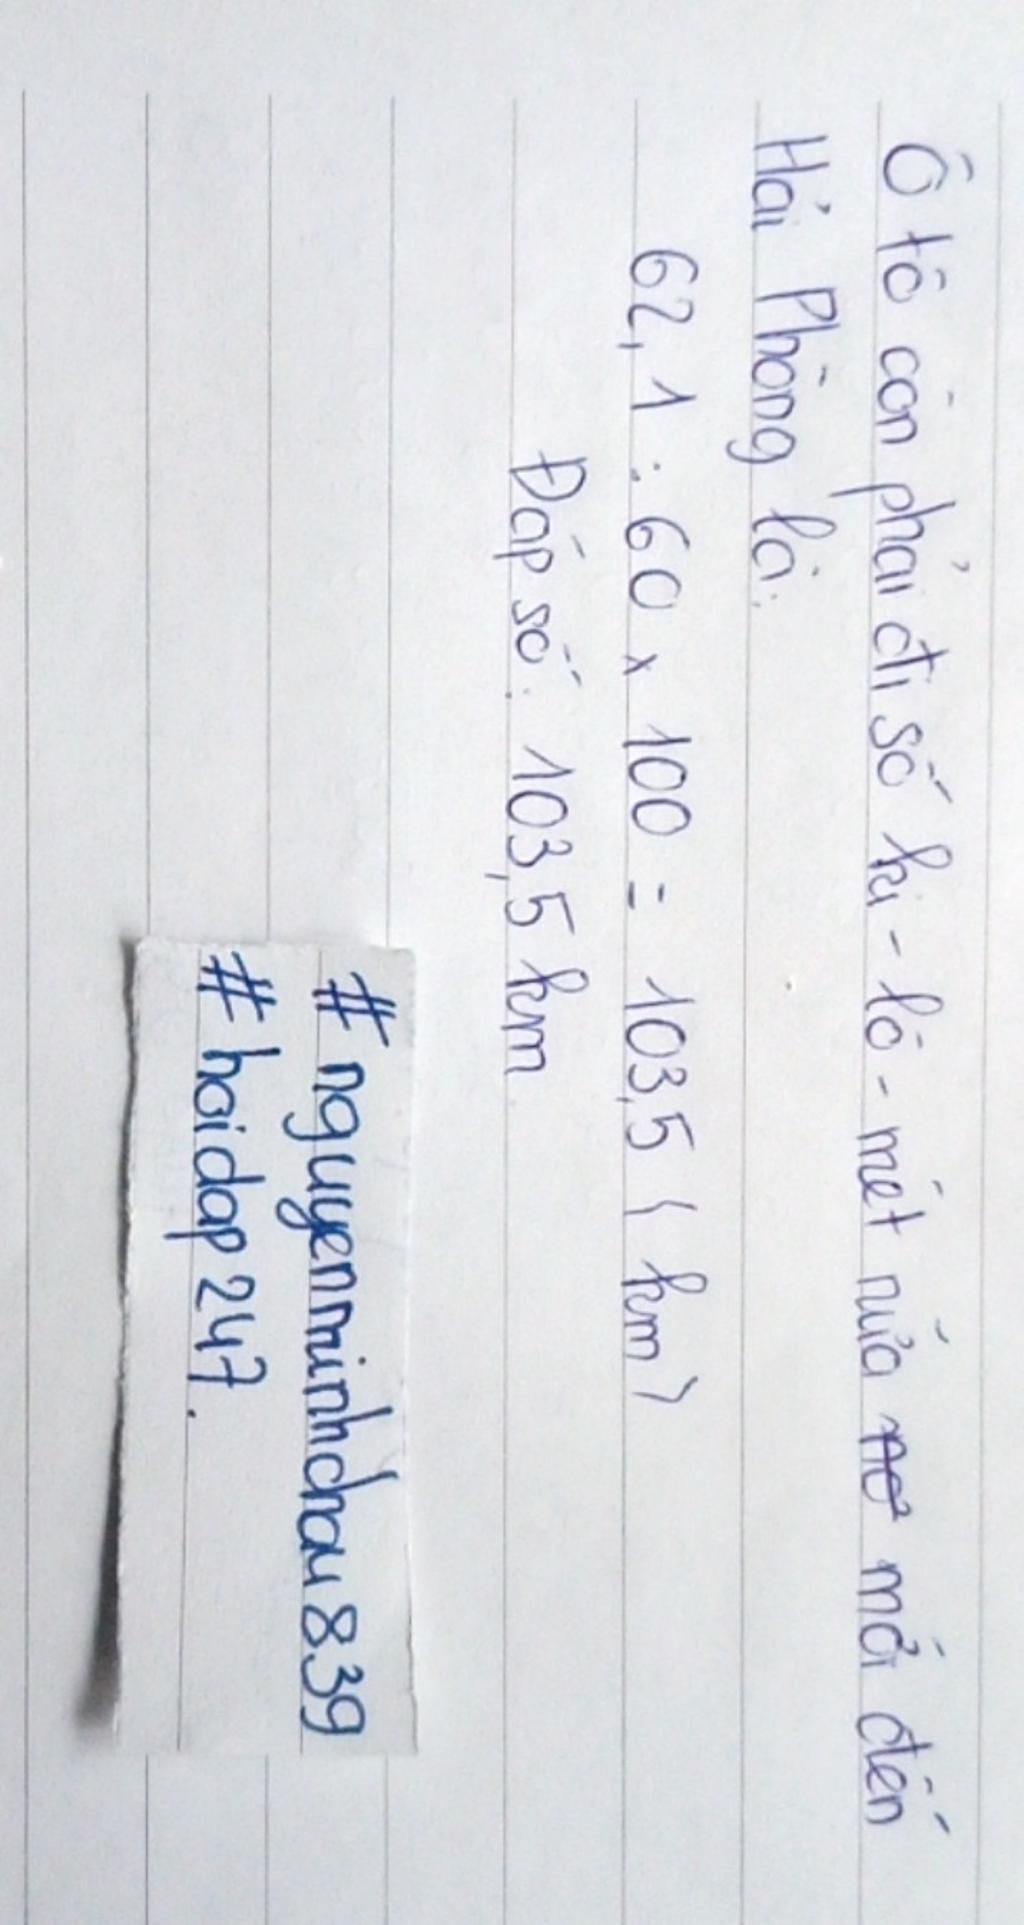 Ô tô còn phải đi số ki-lô-mét nữa mới đến
Hải Phòng là:
62,1 : 60 x 100 = 103,5 (km)
Đáp số: 103,5 km
#nguyenminhchau839
#hoidap247.